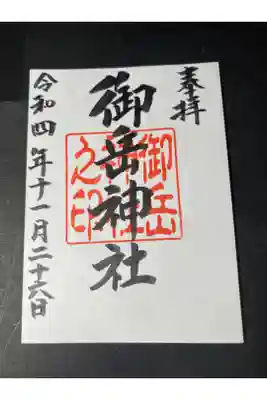 奉拝
御岳神社
御岳神社之印
令和四年十一月二十六日